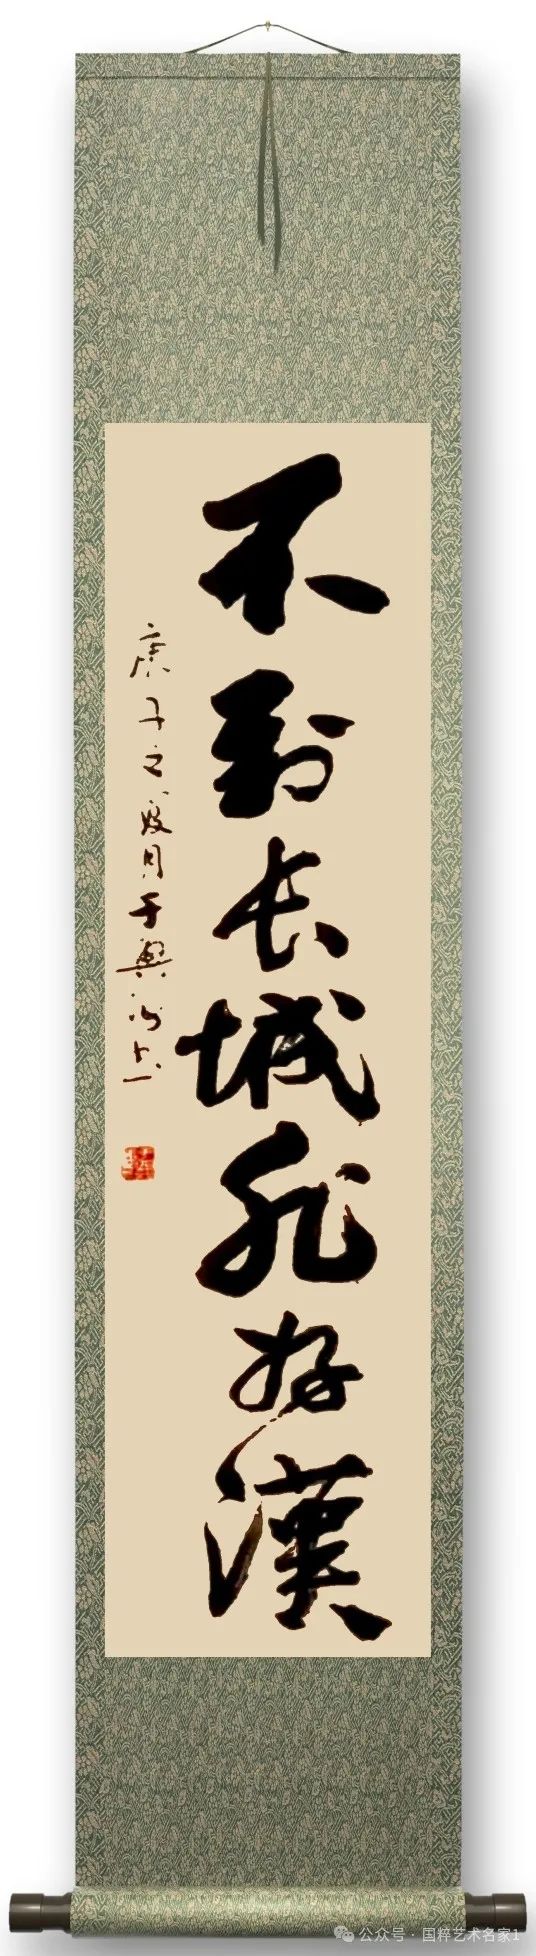 不到长城非好漢
庚子之夏月于
公众号 · 国粹艺术名家1